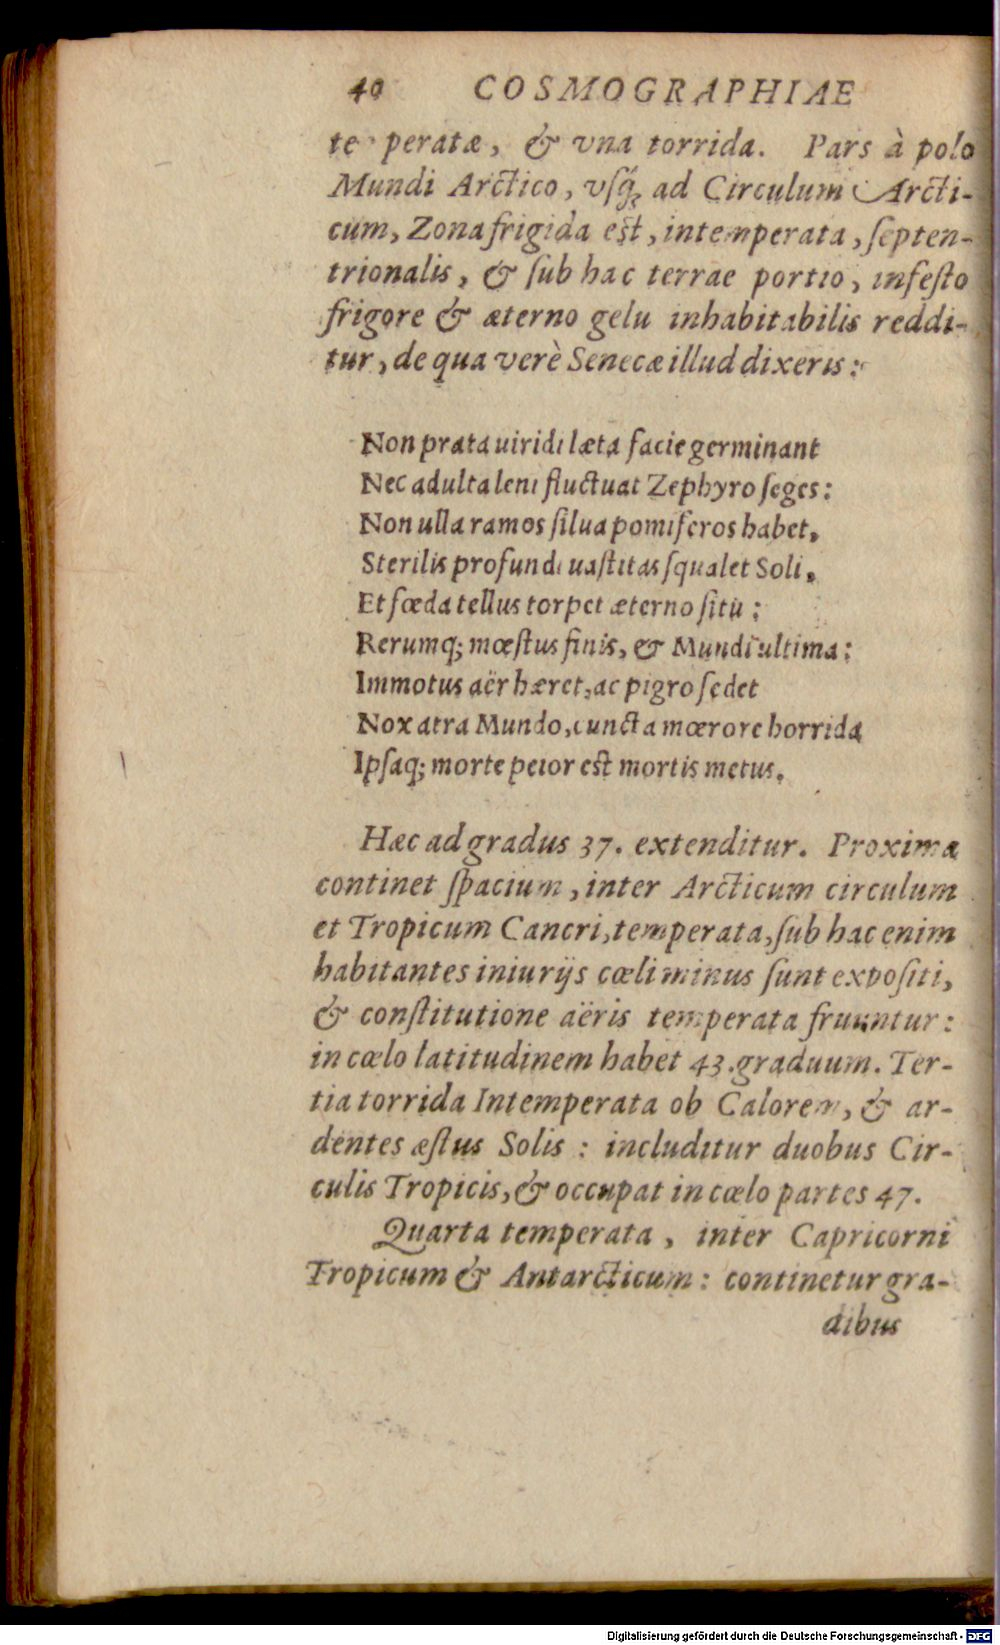 40 COSMOGRAPHIAE
te peratæ, & vna torrida. Pars à polo
Mundi Arctico, vſq́ꝫ ad Circulum Arcti-
cum, Zona frigida eſt, intemperata, ſepten-
trionalis, & ſub hac terrae portio, infeſto
frigore & æterno gelu inhabitabilis reddi-
tur, de qua verè Senecæ illud dixeris:
Non prata uiridi læta facie germinant
Nec adulta leni fluctuat Zephyro ſeges:
Non ulla ramos ſilua pomiferos habet,
Sterilis profundi uaſtitas ſqualet Soli,
Et fœda tellus torpet æterno ſitu:
Rerumq; mœſtus finis, & Mundi ultima:
Immotus aër hæret, ac pigro ſedet
Nox atra Mundo, cuncta mœrore horrida
Ipſaq; morte peior eſt mortis metus.
Hæc ad gradus 37. extenditur. Proxima
continet ſpacium, inter Arcticum circulum
et Tropicum Cancri, temperata, ſub hac enim
habitantes iniurijs cœli minus ſunt expoſiti,
& conſtitutione aëris temperata fruuntur:
in cœlo latitudinem habet 43. graduum. Ter-
tia torrida Intemperata ob Calorem, & ar-
dentes æſtus Solis: includitur duobus Cir-
culis Tropicis, & occupat in cœlo partes 47.
Quarta temperata, inter Capricorni
Tropicum & Antarcticum: continetur gra-
dibus
Digitalisierung gefördert durch die Deutsche Forschungsgemeinschaft - DFG